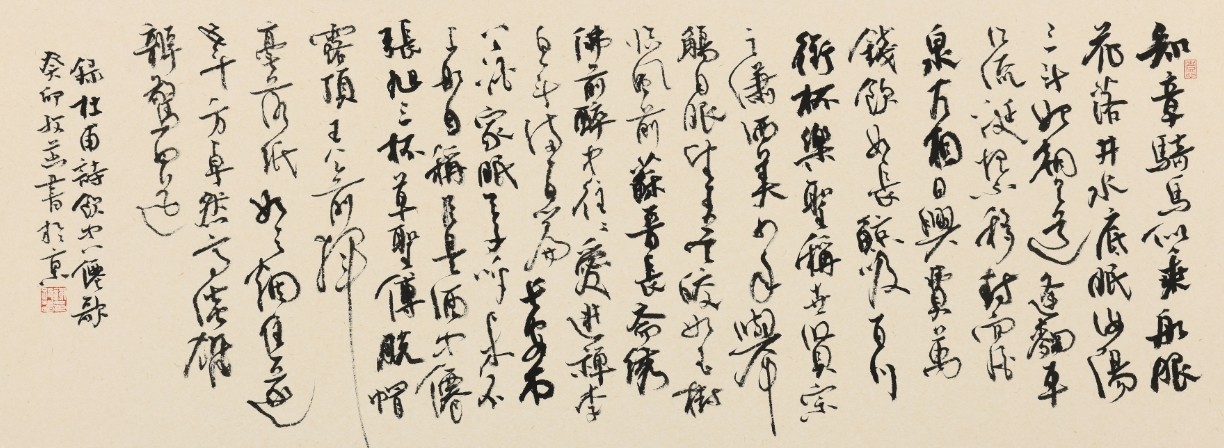 知章騎馬似乘船眼
花落井水底眠汝陽
三斗始朝天道逢麴車
口流涎恨不移封向酒
泉左相日興費萬
錢飲如長鯨吸百川
銜杯樂聖稱世賢宗
之瀟洒美少年舉
觴白眼望青天皎如玉樹
臨風前蘇晉長齋繡
佛前醉中往々愛逃禪李
白斗酒詩百篇長安市
上酒家眠天子呼來不
上船自稱臣是酒中僊
張旭三杯草聖傳脫帽
露頂王公前揮
毫落紙如雲烟焦遂
五斗方卓然高談雄
辯驚四筵
錄杜甫詩飲中八僊歌
癸卯書於京